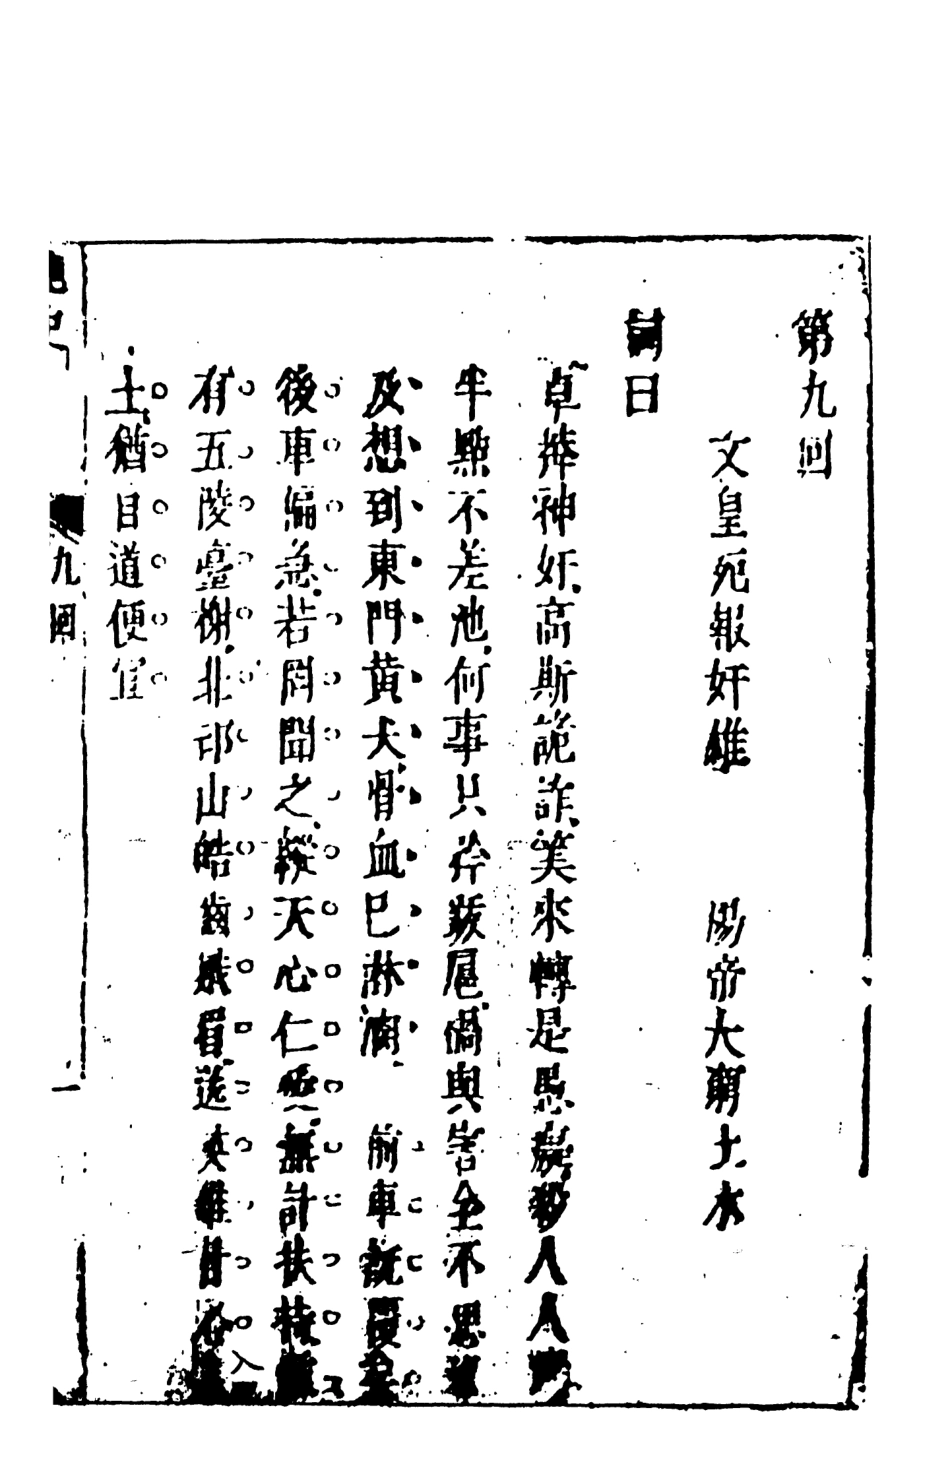 第九回
文皇死報奸雄　煬帝大窮土木
詞曰
卓莽神奸高斯詭詐笑來轉是愚癡殺人人
半點不差池何事只矜跋扈禍與害全不思
及想到東門黃犬骨血已淋漓　前車既覆
後車偏急若罔聞之緩天心仁愛無計扶持
有五陵臺榭北邙山皓齒蛾眉送英雄甘
土猶自道便宜
九回
一